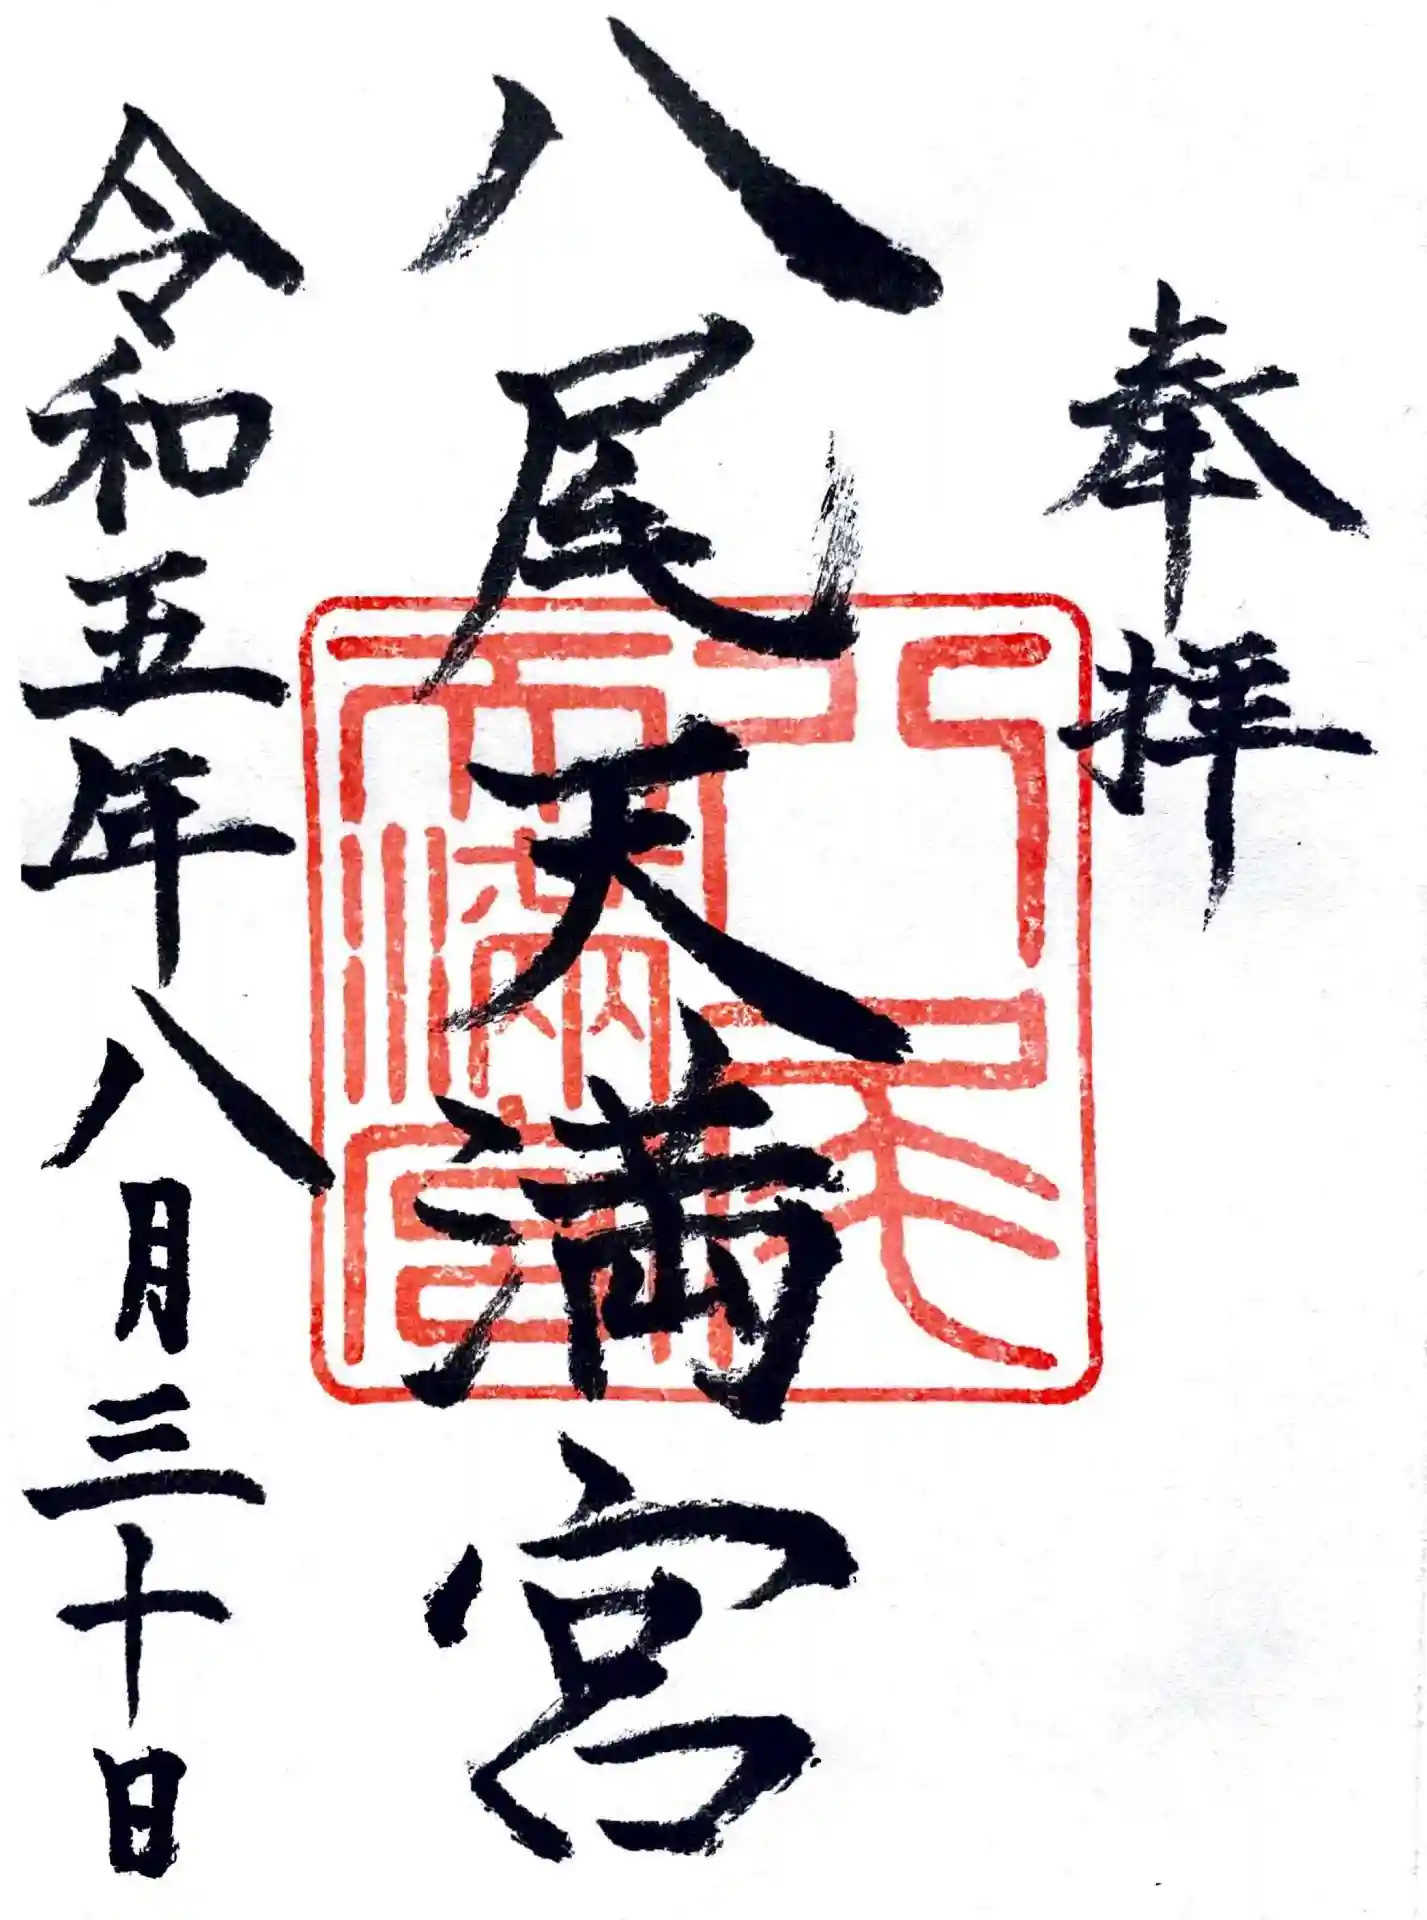 奉拝
八尾天満宮
八尾天満宮
令和五年八月三十日